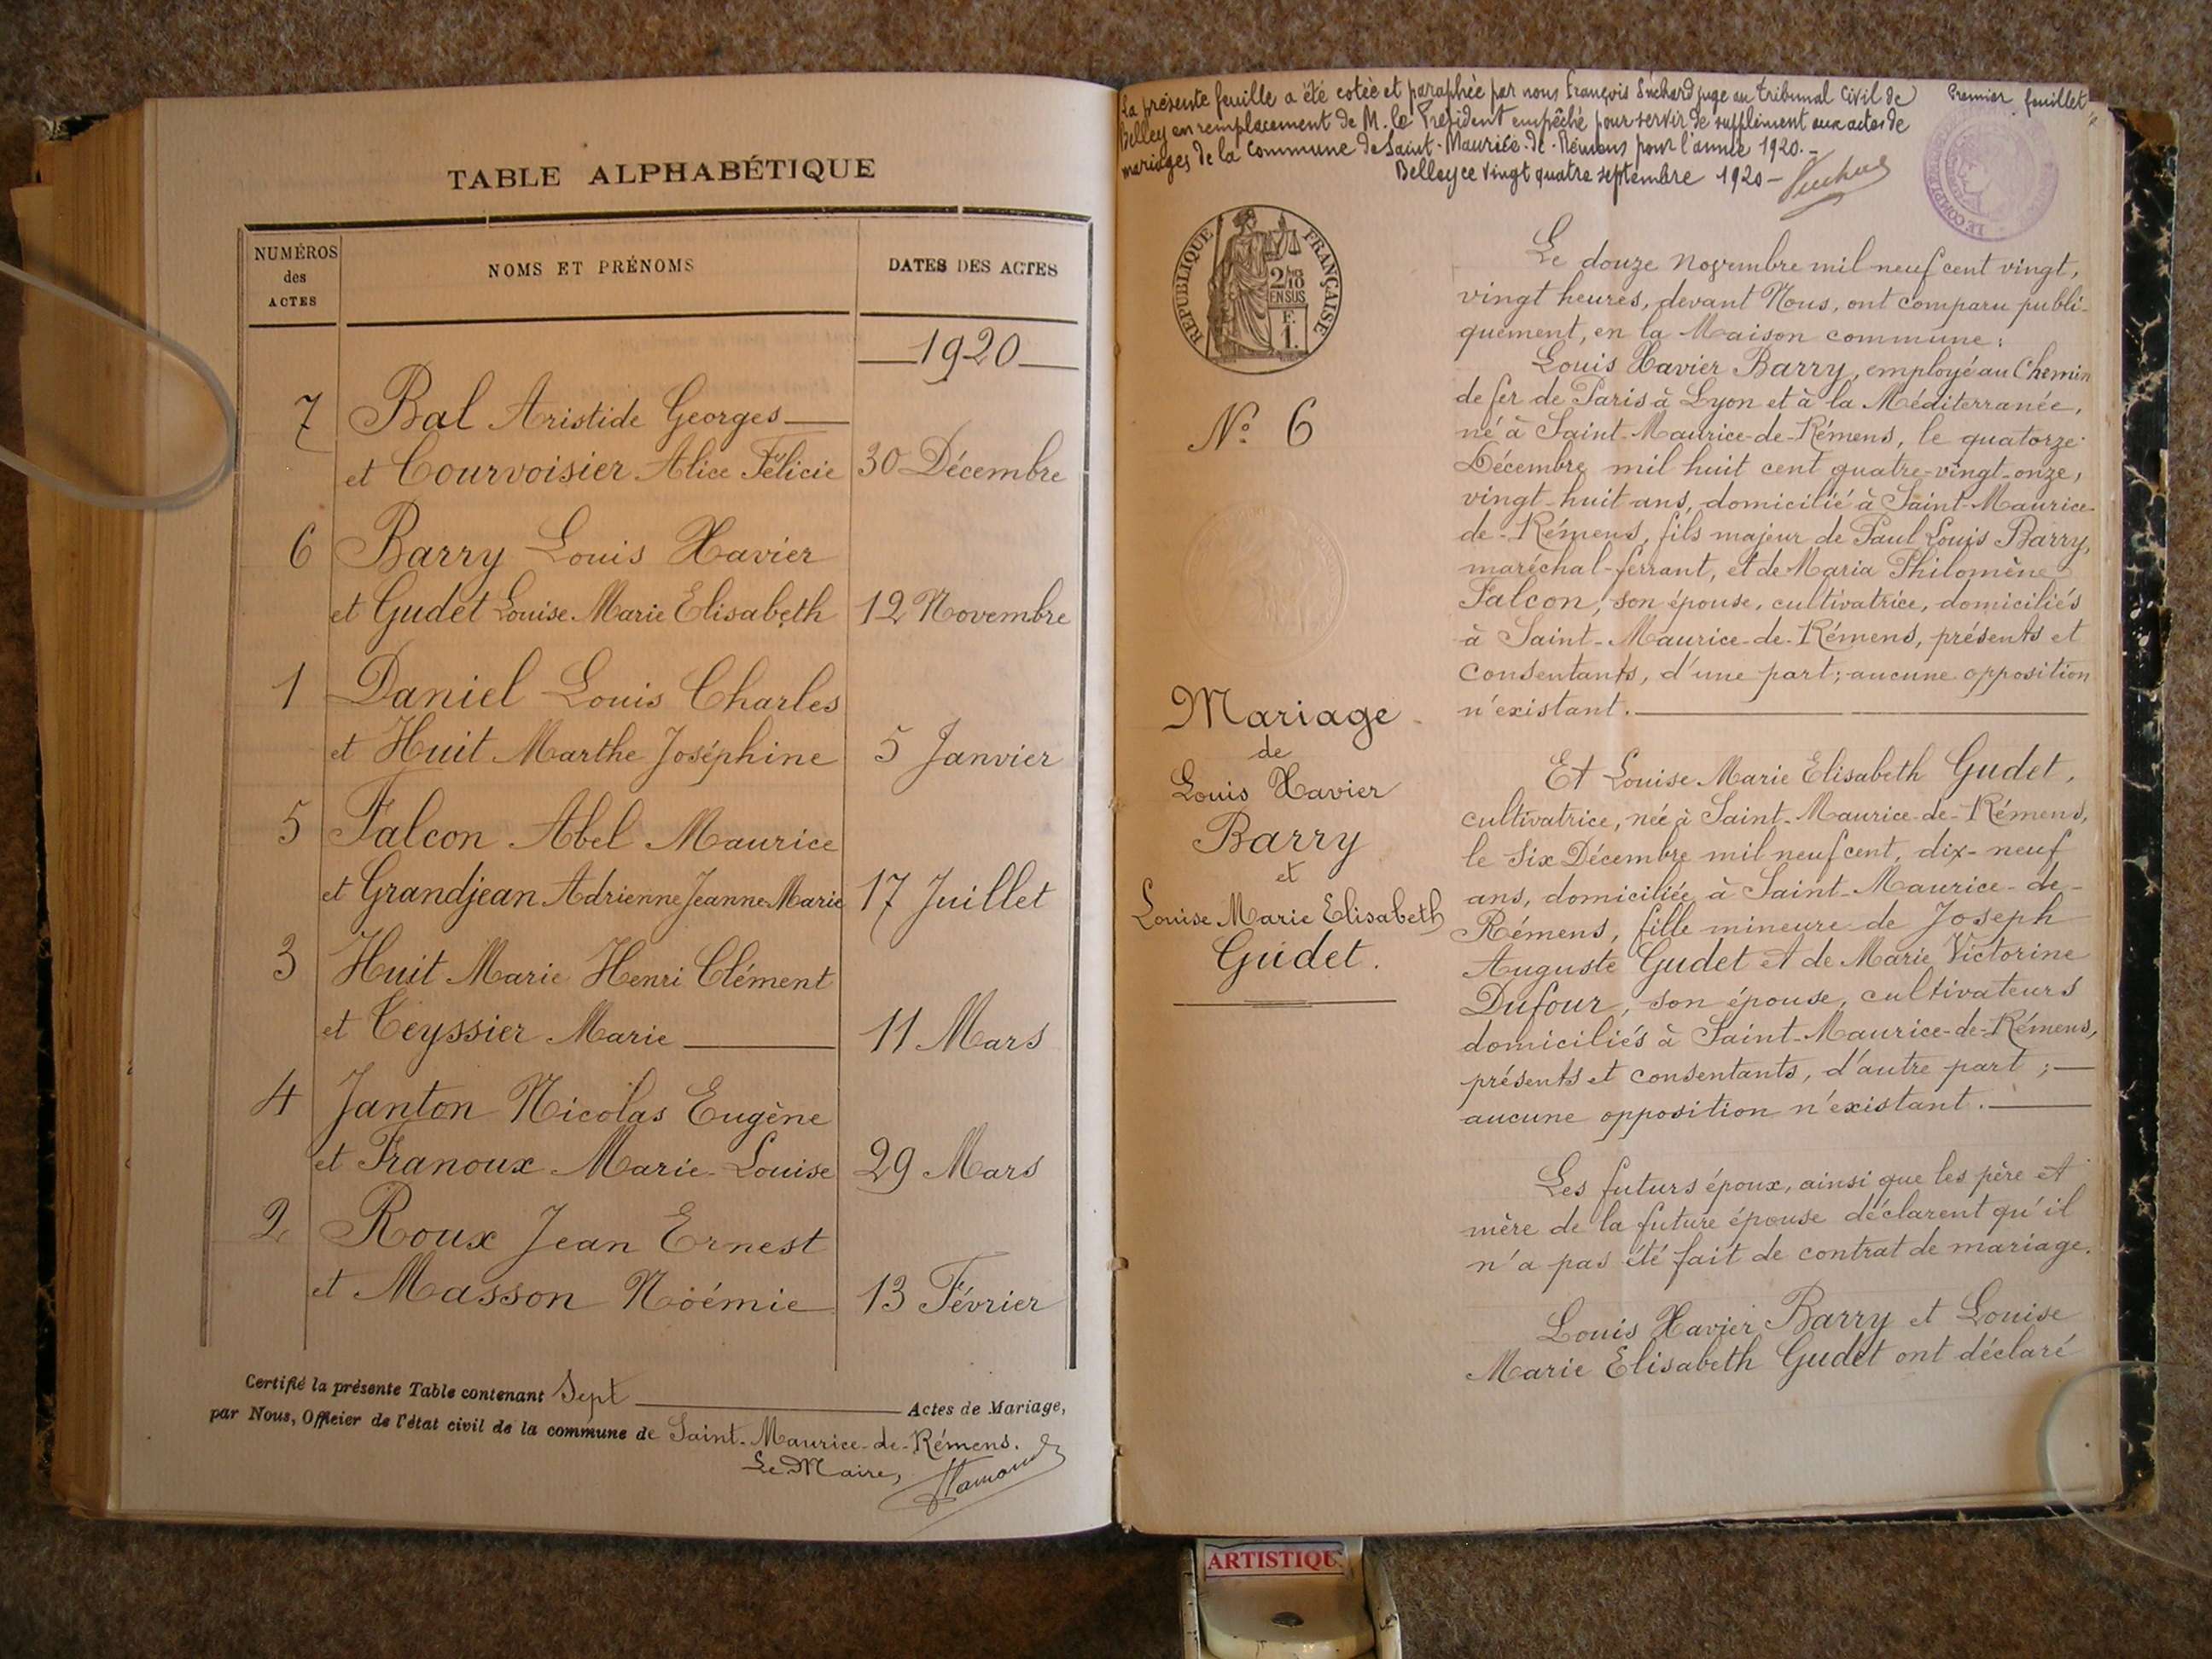 TABLE ALPHABÉTIQUE
NUMÉROS des ACTES
NOMS ET PRÉNOMS
DATES DES ACTES
1920
7 Bal Aristide Georges
et Courvoisier Alice Félicie 30 Décembre
6 Barry Louis Xavier
et Gudet Louise Marie Elisabeth 12 Novembre
1 Daniel Louis Charles
et Huit Marthe Joséphine 5 Janvier
5 Falcon Abel Maurice
et Grandjean Adrienne Jeanne Marie 17 Juillet
3 Huit Marie Henri Clément
et Teyssier Marie 11 Mars
4 Janton Nicolas Eugène
et Franoux Marie-Louise 29 Mars
2 Roux Jean Ernest
et Masson Noémie 13 Février
Certifié la présente Table contenant Sept Actes de Mariage,
par Nous, Officier de l'état civil de la commune de Saint-Maurice-de-Rémens.
Le Maire,
La présente feuille a été cotée et paraphée par nous François juge au tribunal Civil de
Belley en remplacement de M. le Président empêché pour servir de supplément aux actes de
mariages de la commune de Saint-Maurice-de-Rémens pour l'année 1920.-
Belley ce vingt quatre septembre 1920-
Premier feuillet
RÉPUBLIQUE FRANÇAISE
2/10
EN SUS
F.
1.
N° 6
Mariage
de
Louis Xavier
Barry
et
Louise Marie Elisabeth
Gudet.
Le douze Novembre mil neuf cent vingt,
vingt heures, devant Nous, ont comparu publi-
quement, en la Maison commune:
Louis Xavier Barry, employé au Chemin
de fer de Paris à Lyon et à la Méditerranée,
né à Saint-Maurice-de-Rémens, le quatorze
Décembre mil huit cent quatre-vingt-onze,
vingt-huit ans, domicilié à Saint-Maurice-
de-Rémens, fils majeur de Paul Louis Barry,
maréchal-ferrant, et de Maria Philomène
Falcon, son épouse, cultivatrice, domiciliés
à Saint-Maurice-de-Rémens, présents et
consentants, d'une part; aucune opposition
n'existant.
Et Louise Marie Elisabeth Gudet,
cultivatrice, née à Saint-Maurice-de-Rémens,
le Six Décembre mil neuf cent, dix-neuf
ans, domiciliée à Saint-Maurice-de-
Rémens, fille mineure de Joseph
Auguste Gudet et de Marie Victorine
Dufour, son épouse, cultivateurs
domiciliés à Saint-Maurice-de-Rémens,
présents et consentants, d'autre part ;-
aucune opposition n'existant.
Les futurs époux, ainsi que les père et
mère de la future épouse déclarent qu'il
n'a pas été fait de contrat de mariage.
Louis Xavier Barry et Louise
Marie Elisabeth Gudet ont déclaré
ARTISTIQU